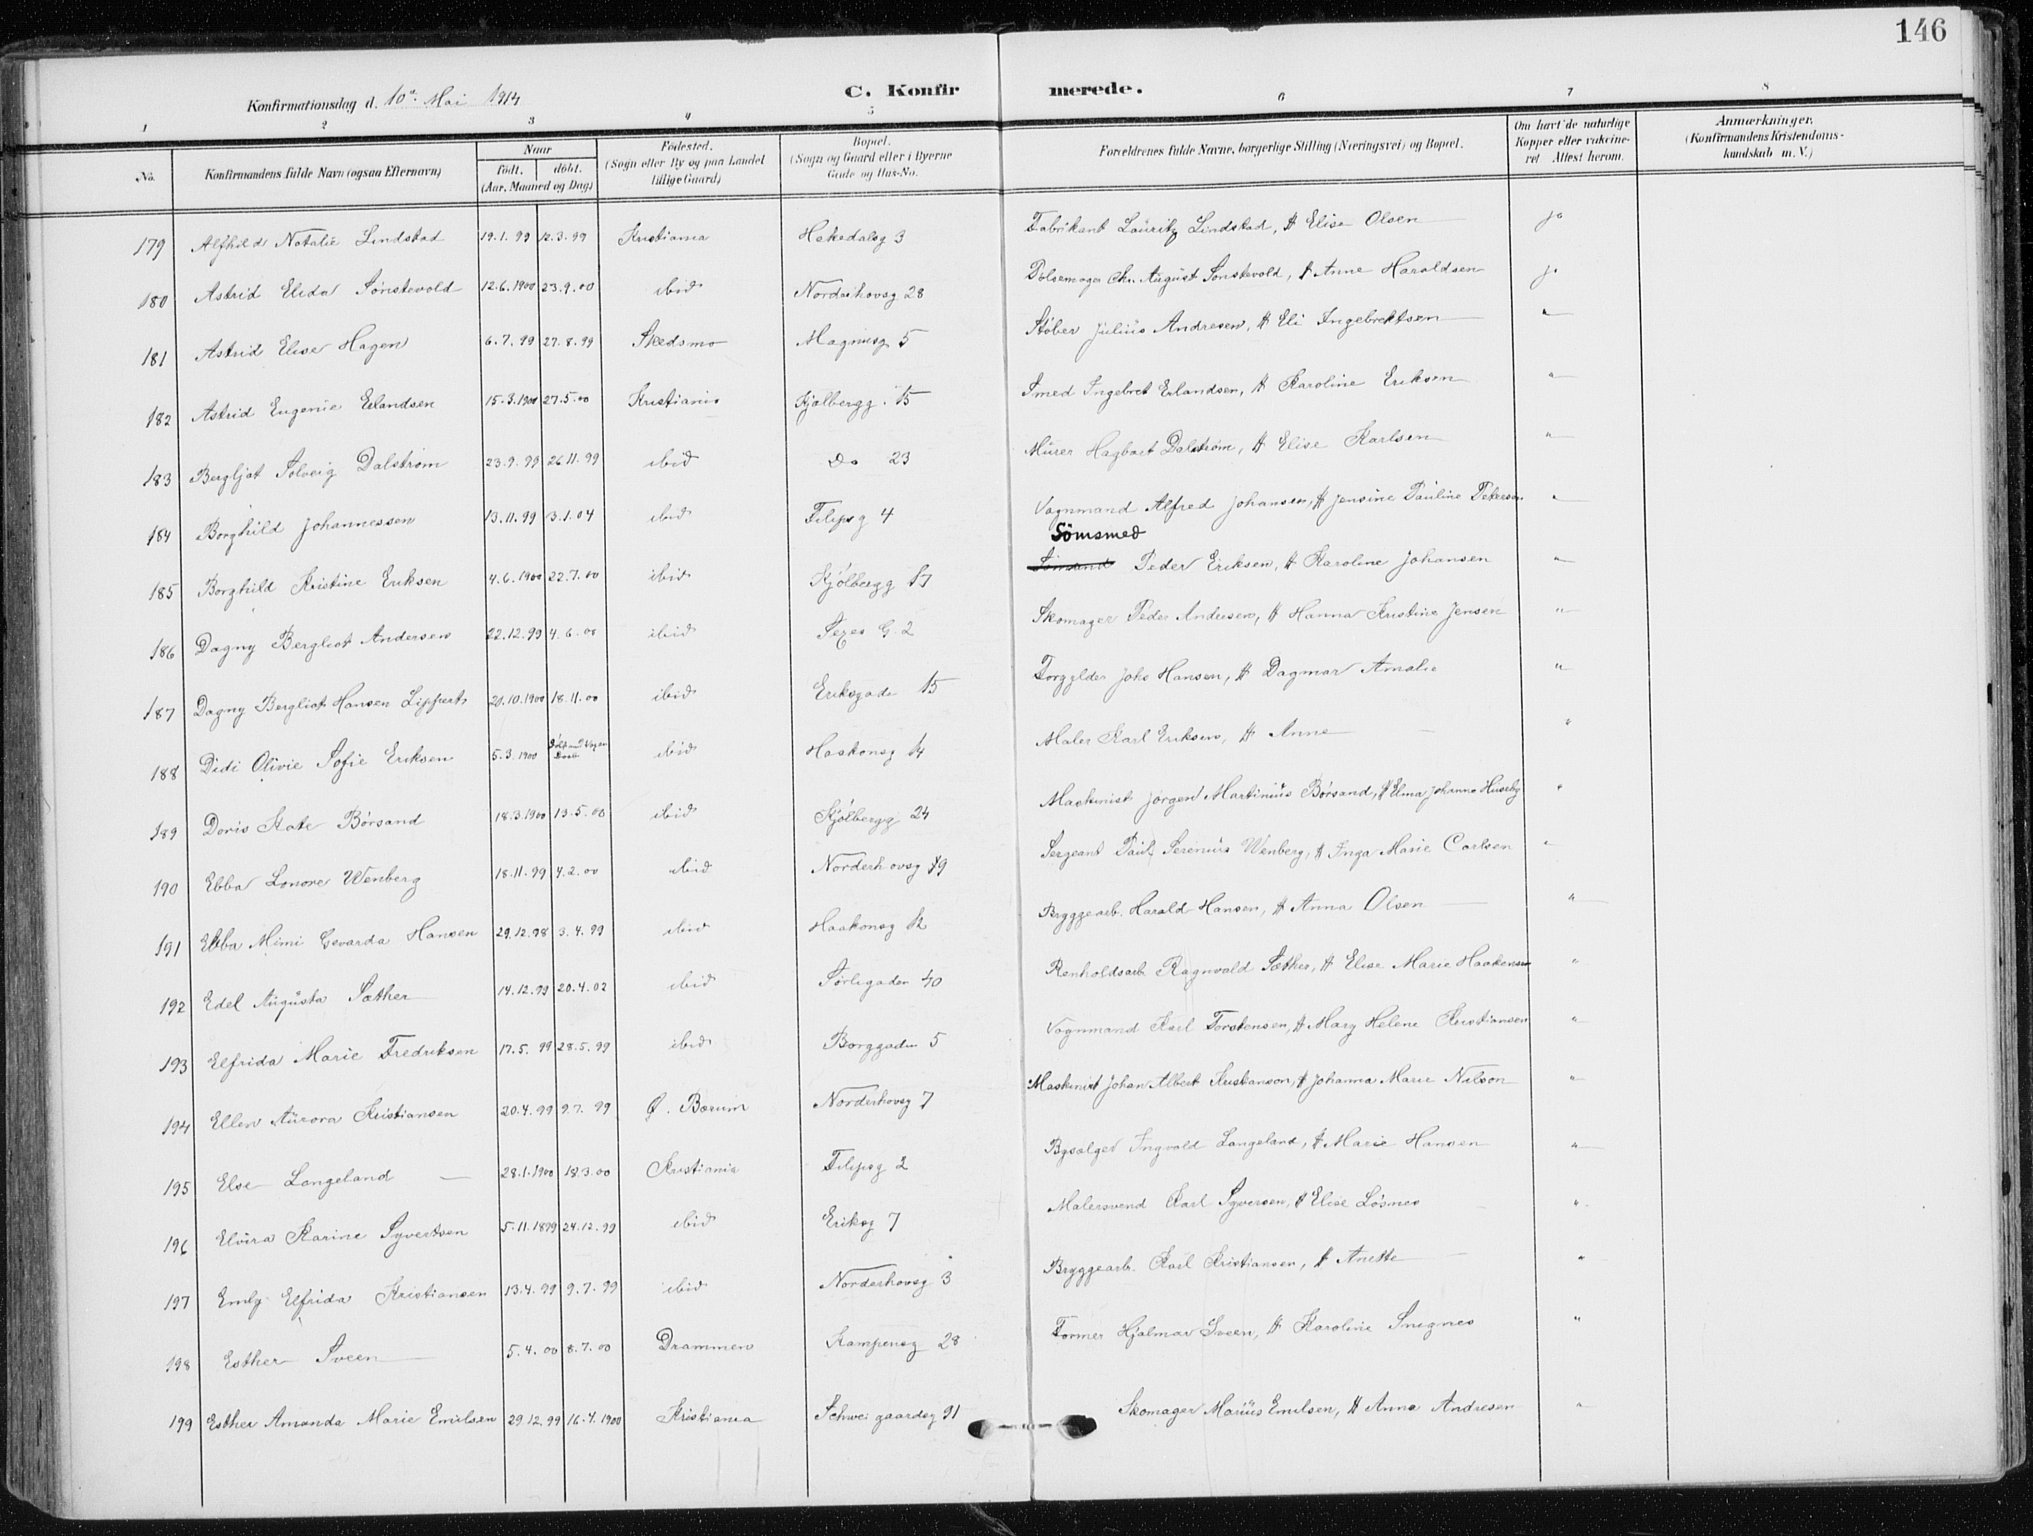 146
Konfirmationsdag d. 10de Mai 1914 C. Konfir merede.
1 2 3 4 5 6 7 8
No. Konfirmandens fulde Navn (ogsaa Efternavn) Naar født. døbt. (Aar, Maaned og Dag) Fødested. (Sogn eller By og paa Landet tillige Gaard) Bopæl. (Sogn og Gaard eller i Byerne Gade og Hus-No. Forældrenes fulde Navne, borgerlige Stilling (Næringsvei) og Bopæl. Om havt de naturlige Kopper eller vakcineret Attest herom. Anmærkninger. (Konfirmandens Kristendomskundskab m. V.)
179 Alfhild Natalie Lindstad 19.1.99 12.3.99 Kristiania Hekedalsg 3 Fabrikant Lauritz Lindstad, H Elise Olsen ja
180 Astrid Elida Sønstevold 12.6.1900 23.9.00 ibid Norderhovsg 28 Pølsemager Chr. August Sønstevold, H Anne Haraldsen ja
181 Astrid Elise Hagen 6.7.99 27.8.99 Skedsmo Magnusg 5 Støber Julius Andresen, H Eli Ingebrektsen "
182 Astrid Eugenie Erlandsen 15.3.1900 27.5.00 Kristiania Kjølbergg. 15 Smed Ingebret Erlandsen, H Karoline Eriksen "
183 Bergljot Solveig Dalstrøm 23.9.99 26.11.99 ibid Do 23 Murer Hagbart Dalstrøm, H Elise Karlsen "
184 Borghild Johannessen 13.11.99 3.1.04 ibid Filipsg 4 Vognmand Alfred Johansen, H Jensine Pauline Petersen "
Sömsmed
185 Borghild Kristine Eriksen 4.6.1900 22.7.00 ibid Kjølbergg 17 Peder Eriksen, H Karoline Johansen "
186 Dagny Bergliot Andersen 22.12.99 4.6.00 ibid Sexes G. 2 Skomager Peder Andersen, H Hanna Kristine Jensen "
187 Dagny Bergliot Hansen Lippert 20.10.1900 18.11.00 ibid Eriksgade 15 Forgylder Johs Hansen, H Dagmar Amalie "
188 Didi Olivie Sofie Eriksen 5.3.1900 ibid Haakonsg 14 Maler Karl Eriksen, H Anne "
189 Doris Kate Børsand 18.3.1900 13.5.00 ibid Kjølbergg 24 Maskinist Jørgen Martinius Børsand, H Elma Johanne Huseby "
190 Ebba Lonore Wenberg 18.11.99 4.2.00 ibid Norderhovsg 19 Sergeant Paul Serenius Wenberg, H Inga Marie Carlsen "
191 Ebba Mimi Gevarda Hansen 29.12.98 3.4.99 ibid Haakonsg 12 Bryggearb. Harald Hansen, H Anna Olsen "
192 Edel Augusta Sæther 14.12.99 20.4.02 ibid Sørligaden 40 Renholdsarb Ragnvald Sæther, H Elise Marie Haakensen "
193 Elfrida Marie Fredriksen 17.5.99 28.5.99 ibid Borggaden 5 Vognmand Karl Torstensen, H Mary Helene Kristiansen "
194 Ellen Aurora Kristiansen 20.4.99 9.7.99 Ø. Bærum Norderhovsg 7 Maskinist Johan Albert Kristianson, H Johanna Marie Nilson "
195 Else Langeland 28.1.1900 18.3.00 Kristiania Filipsg 2 Bysælger Ingvald Langeland, H Marie Hansen "
196 Elvira Karine Syvertsen 5.11.1899 24.12.99 ibid Eriksg 7 Malersvend Karl Syversen, H Elise Løsnes "
197 Emly Elfrida Kristiansen 13.4.99 9.7.99 ibid Norderhovsg 3 Bryggearb. Karl Kristiansen, H Anette "
198 Esther Sveen 5.4.00 8.7.00 Drammen Kampensg 28 Former Hjalmar Sveen, H Karoline Snegnes "
199 Esther Amanda Marie Emilsen 29.12.99 16.4.1900 Kristiania Schweigaardsg 91 Skomager Marius Emilsen, H Anna Andresen "